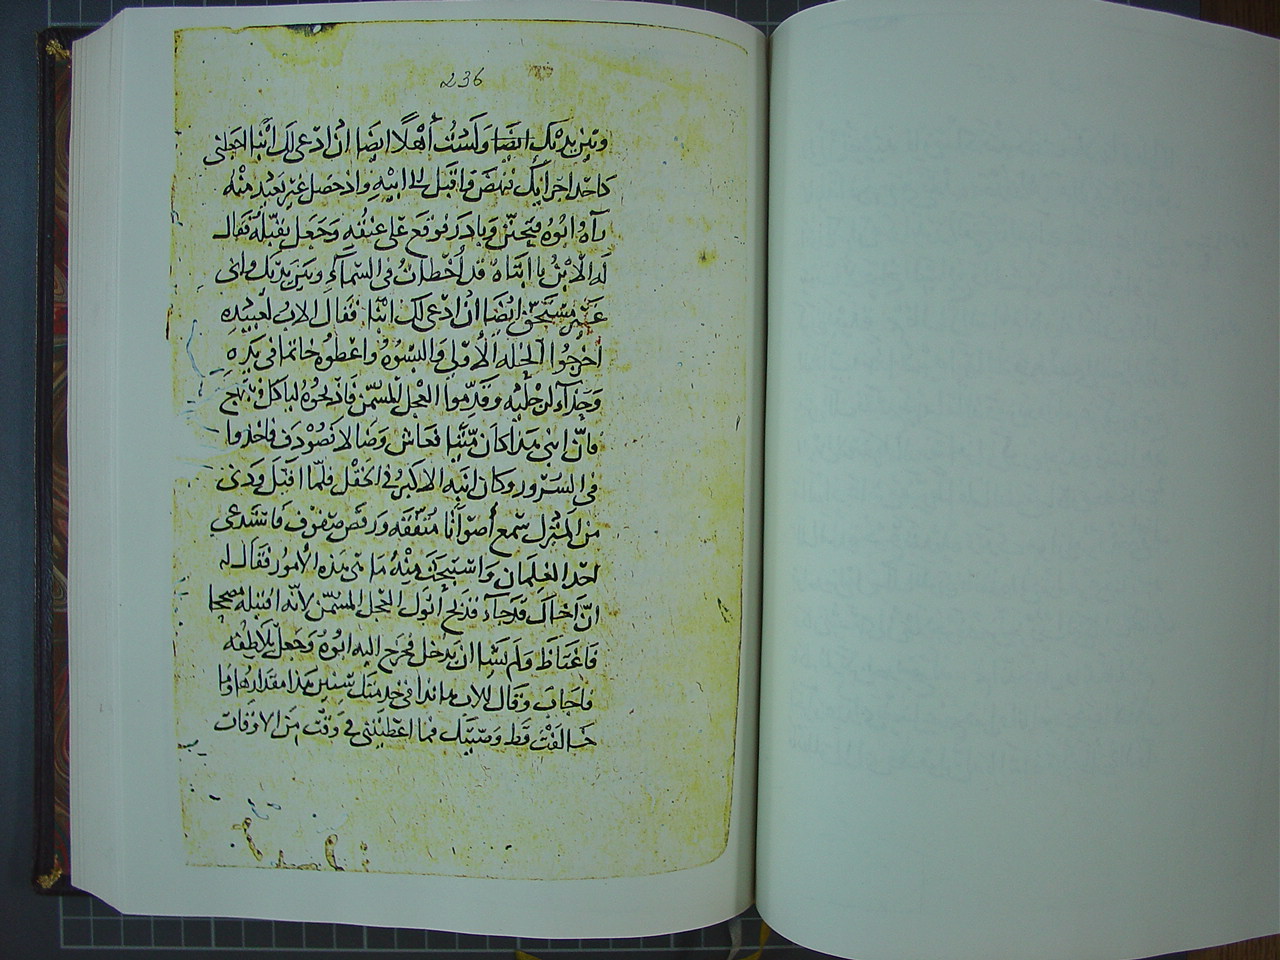 236
وبَيْن يديْك ايضًا وَلَسْتُ أهْلًا ايضًا انْ ادْعى لك ابْنًا اجعلنى
كاحد اجرايك فنهَضَ واقبل الى ابيْهِ واذ حصل غيْر بَعيْد منْهُ
رآهُ ابُوهُ فتحنّن وبَادَرَ فوقع على عنُقهِ وَجَعل يقبّلهُ فقال
لهُ الابْنُ يا ابتاهُ قد أخْطاتُ فى السّمآءِ وبَيْن يديْك وانى
غيْر مسْتحقّ ايْضًا انْ ادْعى لك ابْنًا فقال الابُ لعَبيْدِه
اخرجُوا الحُله الأُوْلى والبسُوهُ واعْطوُه خاتما فى يَدِهِ
وحِذآء لرجْليْه وقَدِّموا العجْل المسّمن فاذبحُوهُ لناكل ونبْهج
فانّ ابْنى هَذا كان ميّتًا فعَاش وضَالا فصُودِف فاخذوا
فى السّروْر وكان ابْنه الاكبرُ فى الحَقْل فلمّا اقبَل ودَنى
من المنْزل سَمع أصْوَاتًا مُتّفقَه ورقص صفوف فاسْتدعى
احد الغِلمَان وَاسْتبحَثَ منْهُ مَا هى هَذه الأمُورُ فقال له
انّ اخَاك قد جَآء فذبَح أبُوك العجْل المسّمن لأنّه اقتبله صحيحًا
فاغتَاظَ وَلم يَشَا ان يدْخل فخرج اليه ابُوهُ وَجَعل يُلاطِفه
فاجَاب وقال للاب هانذا فى خِدمَتك سنين هَذا مقدَارهَا وَمَا
خَالفْتُ قَط وَصّيتك فما اعْطيْتنى فى وَقْت مِنَ الاوْقات